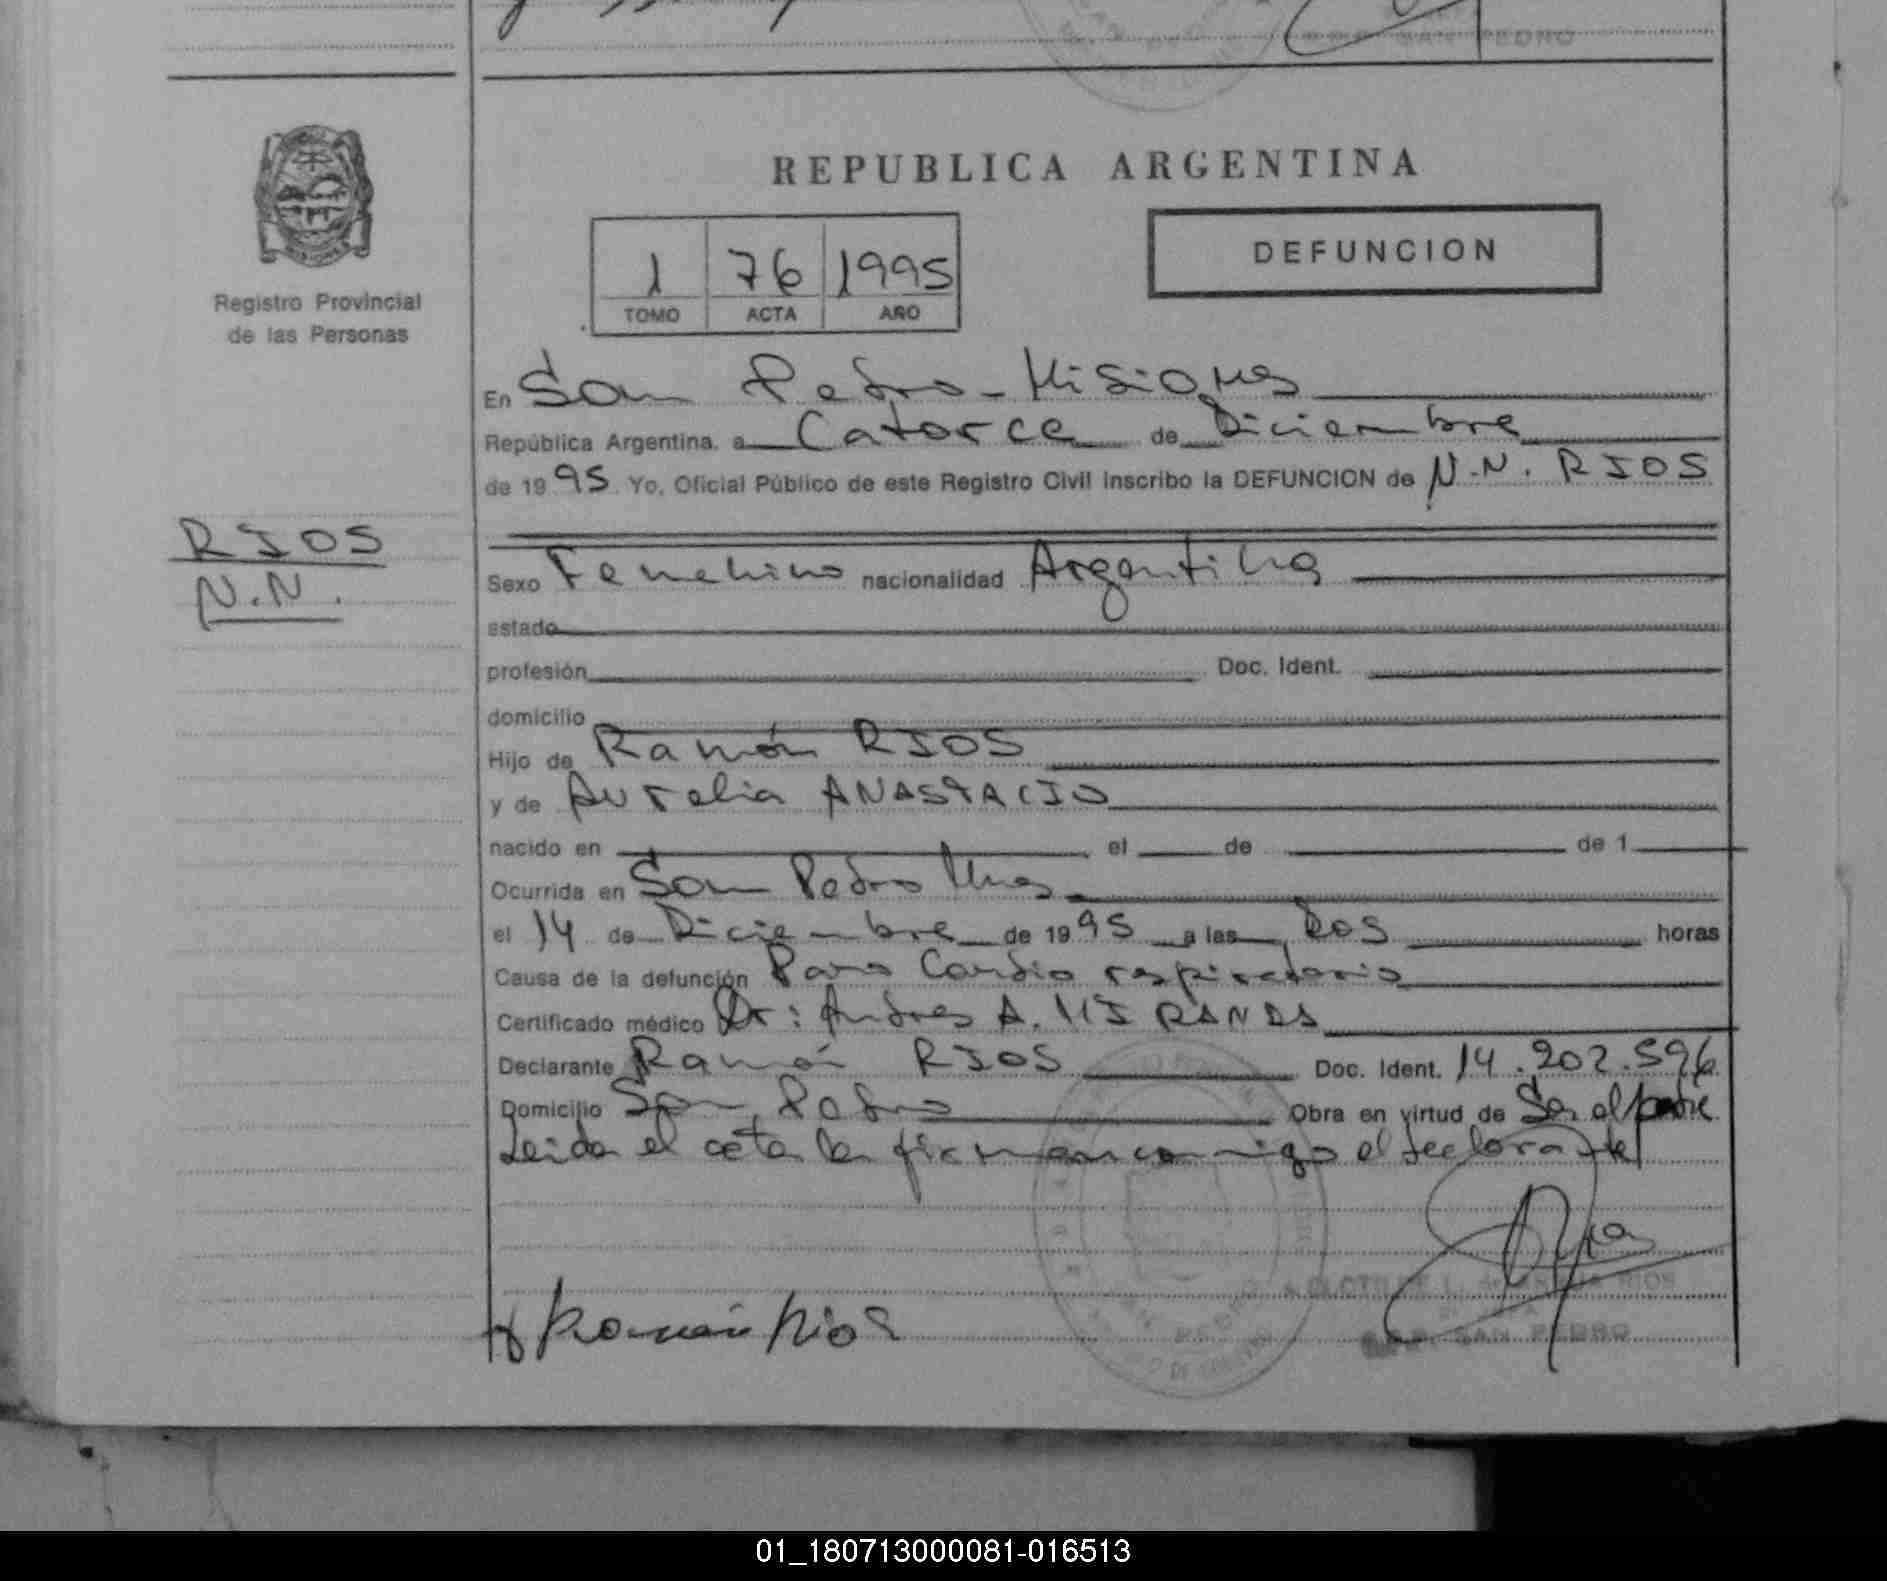 SAN PEDRO
REPUBLICA ARGENTINA
1 76 1995
TOMO ACTA AÑO
DEFUNCION
Registro Provincial
de las Personas
En San Pedro - Misiones
República Argentina, a Catorce de Diciembre
de 1995 Yo, Oficial Público de este Registro Civil inscribo la DEFUNCION de N.N. RIOS
RIOS
N.N.
Sexo Femenino nacionalidad Argentina
estado
profesión Doc. Ident.
domicilio
Hijo de Ramón RIOS
y de Aurelia ANASTACIO
nacido en el de de 1
Ocurrida en San Pedro Mnes
el 14 de Diciembre de 1995 a las Dos horas
Causa de la defunción Paro Cardio respiratorio
Certificado médico Dr: Andres A. MIRANDA
Declarante Ramón RIOS Doc. Ident. 14.202.596
Domicilio San Pedro Obra en virtud de Ser el padre
Leida el acta la firman conmigo el declarante
Ramón Rios
SAN PEDRO
01_180713000081-016513